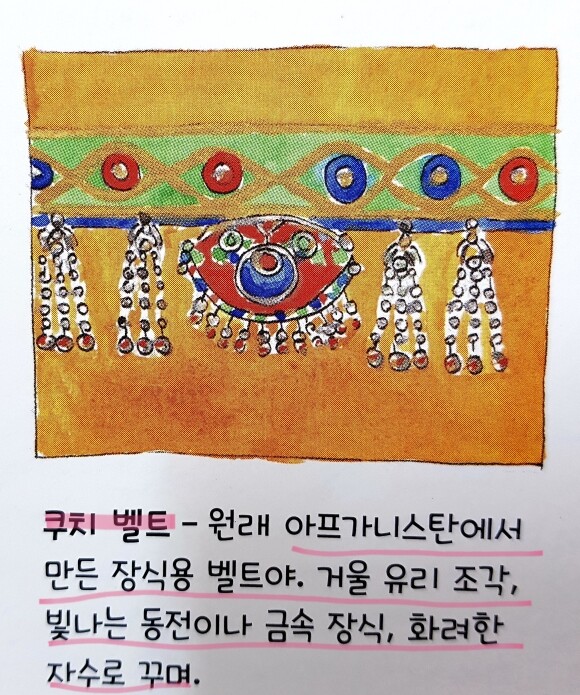 쿠치 벨트 - 원래 아프가니스탄에서
만든 장식용 벨트야. 거울 유리 조각,
빛나는 동전이나 금속 장식, 화려한
자수로 꾸며.